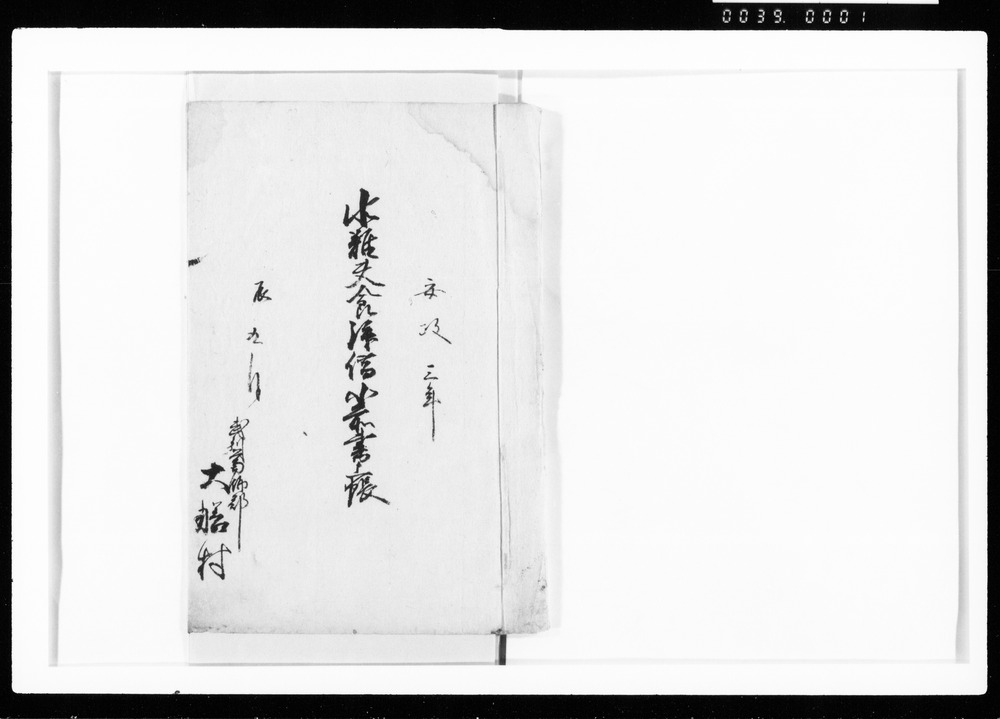 0039.0001
安政三年
水難夫食拝借小前書帳
辰九月
武州葛飾郡
大膳村